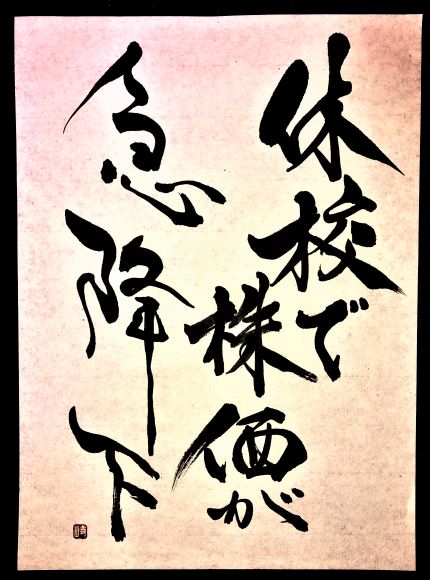 休校で
株価が
急降下